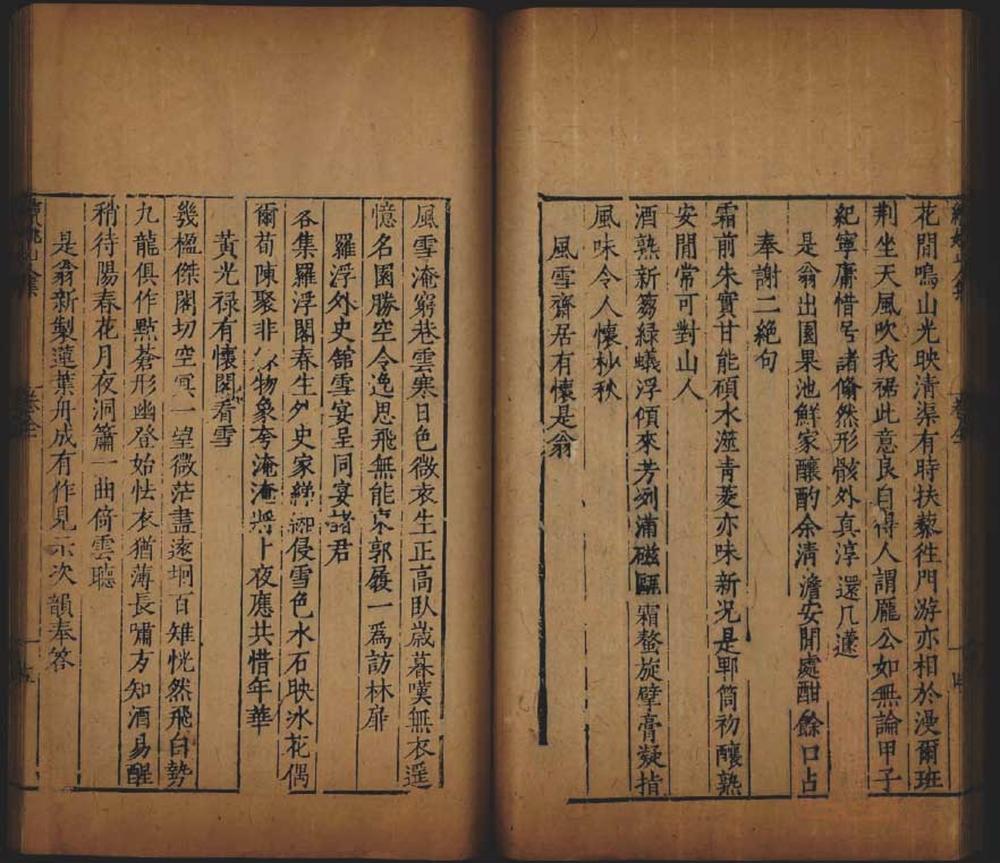 花間鳴山光映清渠有時扶藜徃門游亦相於漫爾班
荆坐天風吹我裾此意良自得人謂龎公如無論甲子
紀寧庸惜諸翛然形骸外真淳還几蘧
是翁出園果池鮮家釀酌余清澹安閒處酣餘口占
奉謝二絶句
霜前朱實甘能碩水滋青菱亦味新况是郫筒初釀熟
安閒常可對山人
酒熟新篘緑蟻浮傾來芳冽滿磁甌霜螯旋擘膏凝指
風味令人懷杪秋
風雪齋居有懷是翁
風雪淹窮巷雲寒日色微衣生正高臥歲暮嘆無衣遥
憶名園勝空令逸思飛無能東郭履一爲訪林扉
羅浮外史舘雪宴呈同宴諸君
各集羅浮閣春生外史家綈侵雪色水石映冰花偶
爾荀陳聚非物象夸淹淹將卜夜應共惜年華
黃光禄有懷閣看雪
幾楹傑閣切空冥一望微茫盡逺坰百雉恍然飛白勢
九龍俱作點蒼形幽登始怯衣猶薄長嘯方知酒易醒
稍待陽春花月夜洞簫一曲倚雲聽
是翁新製蓮葉舟成有作見示次韻奉答